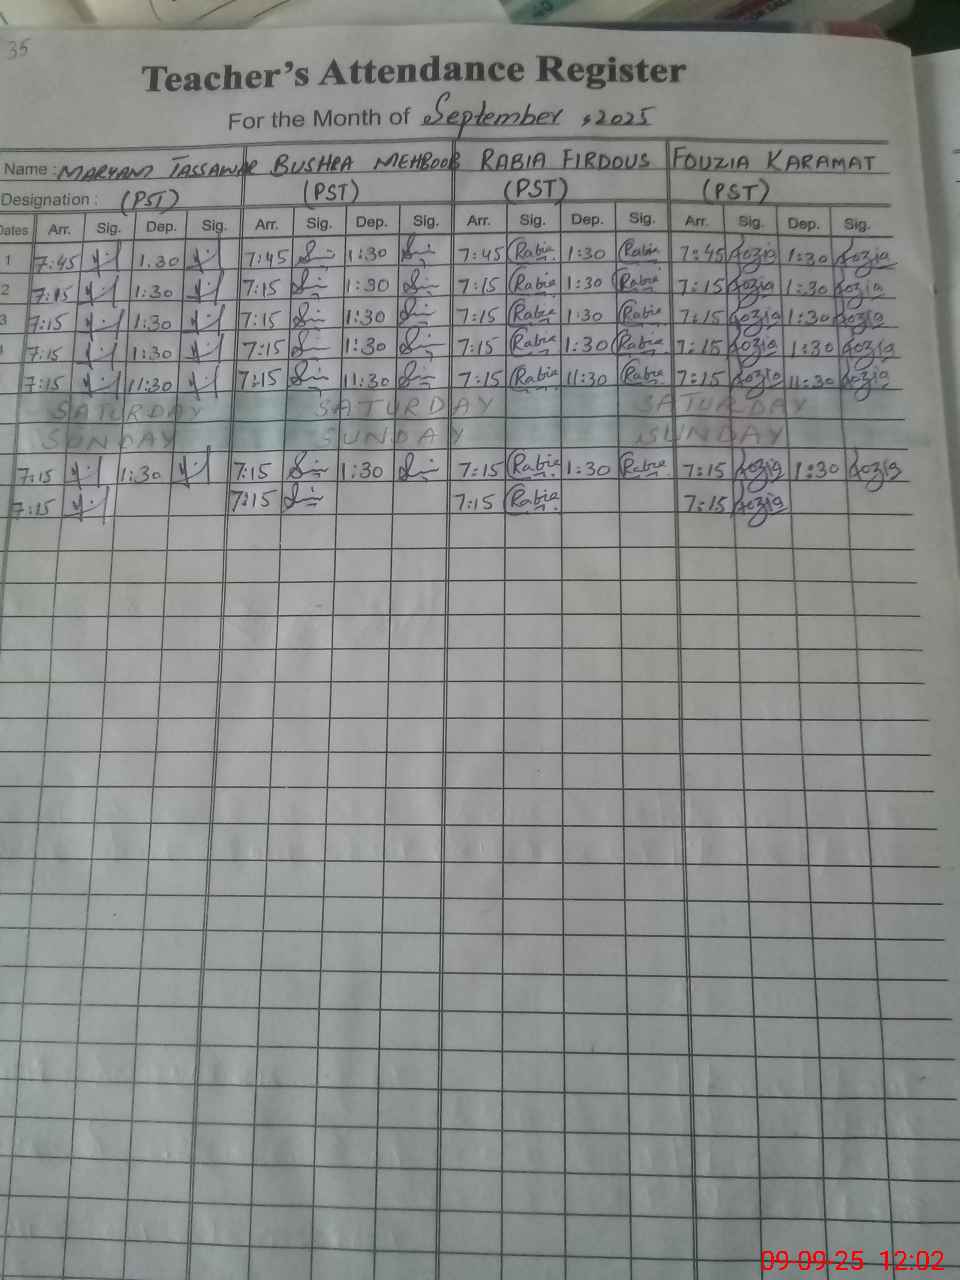 35
Teacher's Attendance Register
For the Month of September , 2025
Name : MARYAM TASSAWAR BUSHRA MEHBOOB RABIA FIRDOUS FOUZIA KARAMAT
Designation : (PST) (PST) (PST) (PST)
Dates Arr. Sig. Dep. Sig. Arr. Sig. Dep. Sig. Arr. Sig. Dep. Sig. Arr. Sig. Dep. Sig.
1 7:45 1.30 7:45 1:30 7:45 Rabia 1:30 Rabia 7:45 fozia 1:30 fozia
2 7:15 1:30 7:15 1:30 7:15 Rabia 1:30 Rabia 7:15 fozia 1:30 fozia
3 7:15 1:30 7:15 1:30 7:15 Rabia 1:30 Rabia 7:15 fozia 1:30 fozia
7:15 1:30 7:15 1:30 7:15 Rabia 1:30 Rabia 7:15 fozia 1:30 fozia
7:15 11:30 7:15 11:30 7:15 Rabia 11:30 Rabia 7:15 fozia 11:30 fozia
SATURDAY SATURDAY SATURDAY
SUNDAY SUNDAY SUNDAY
7:15 1:30 7:15 1:30 7:15 Rabia 1:30 Rabia 7:15 fozia 1:30 fozia
7:15 7:15 7:15 Rabia 7:15 fozia
09-09-25 12:02